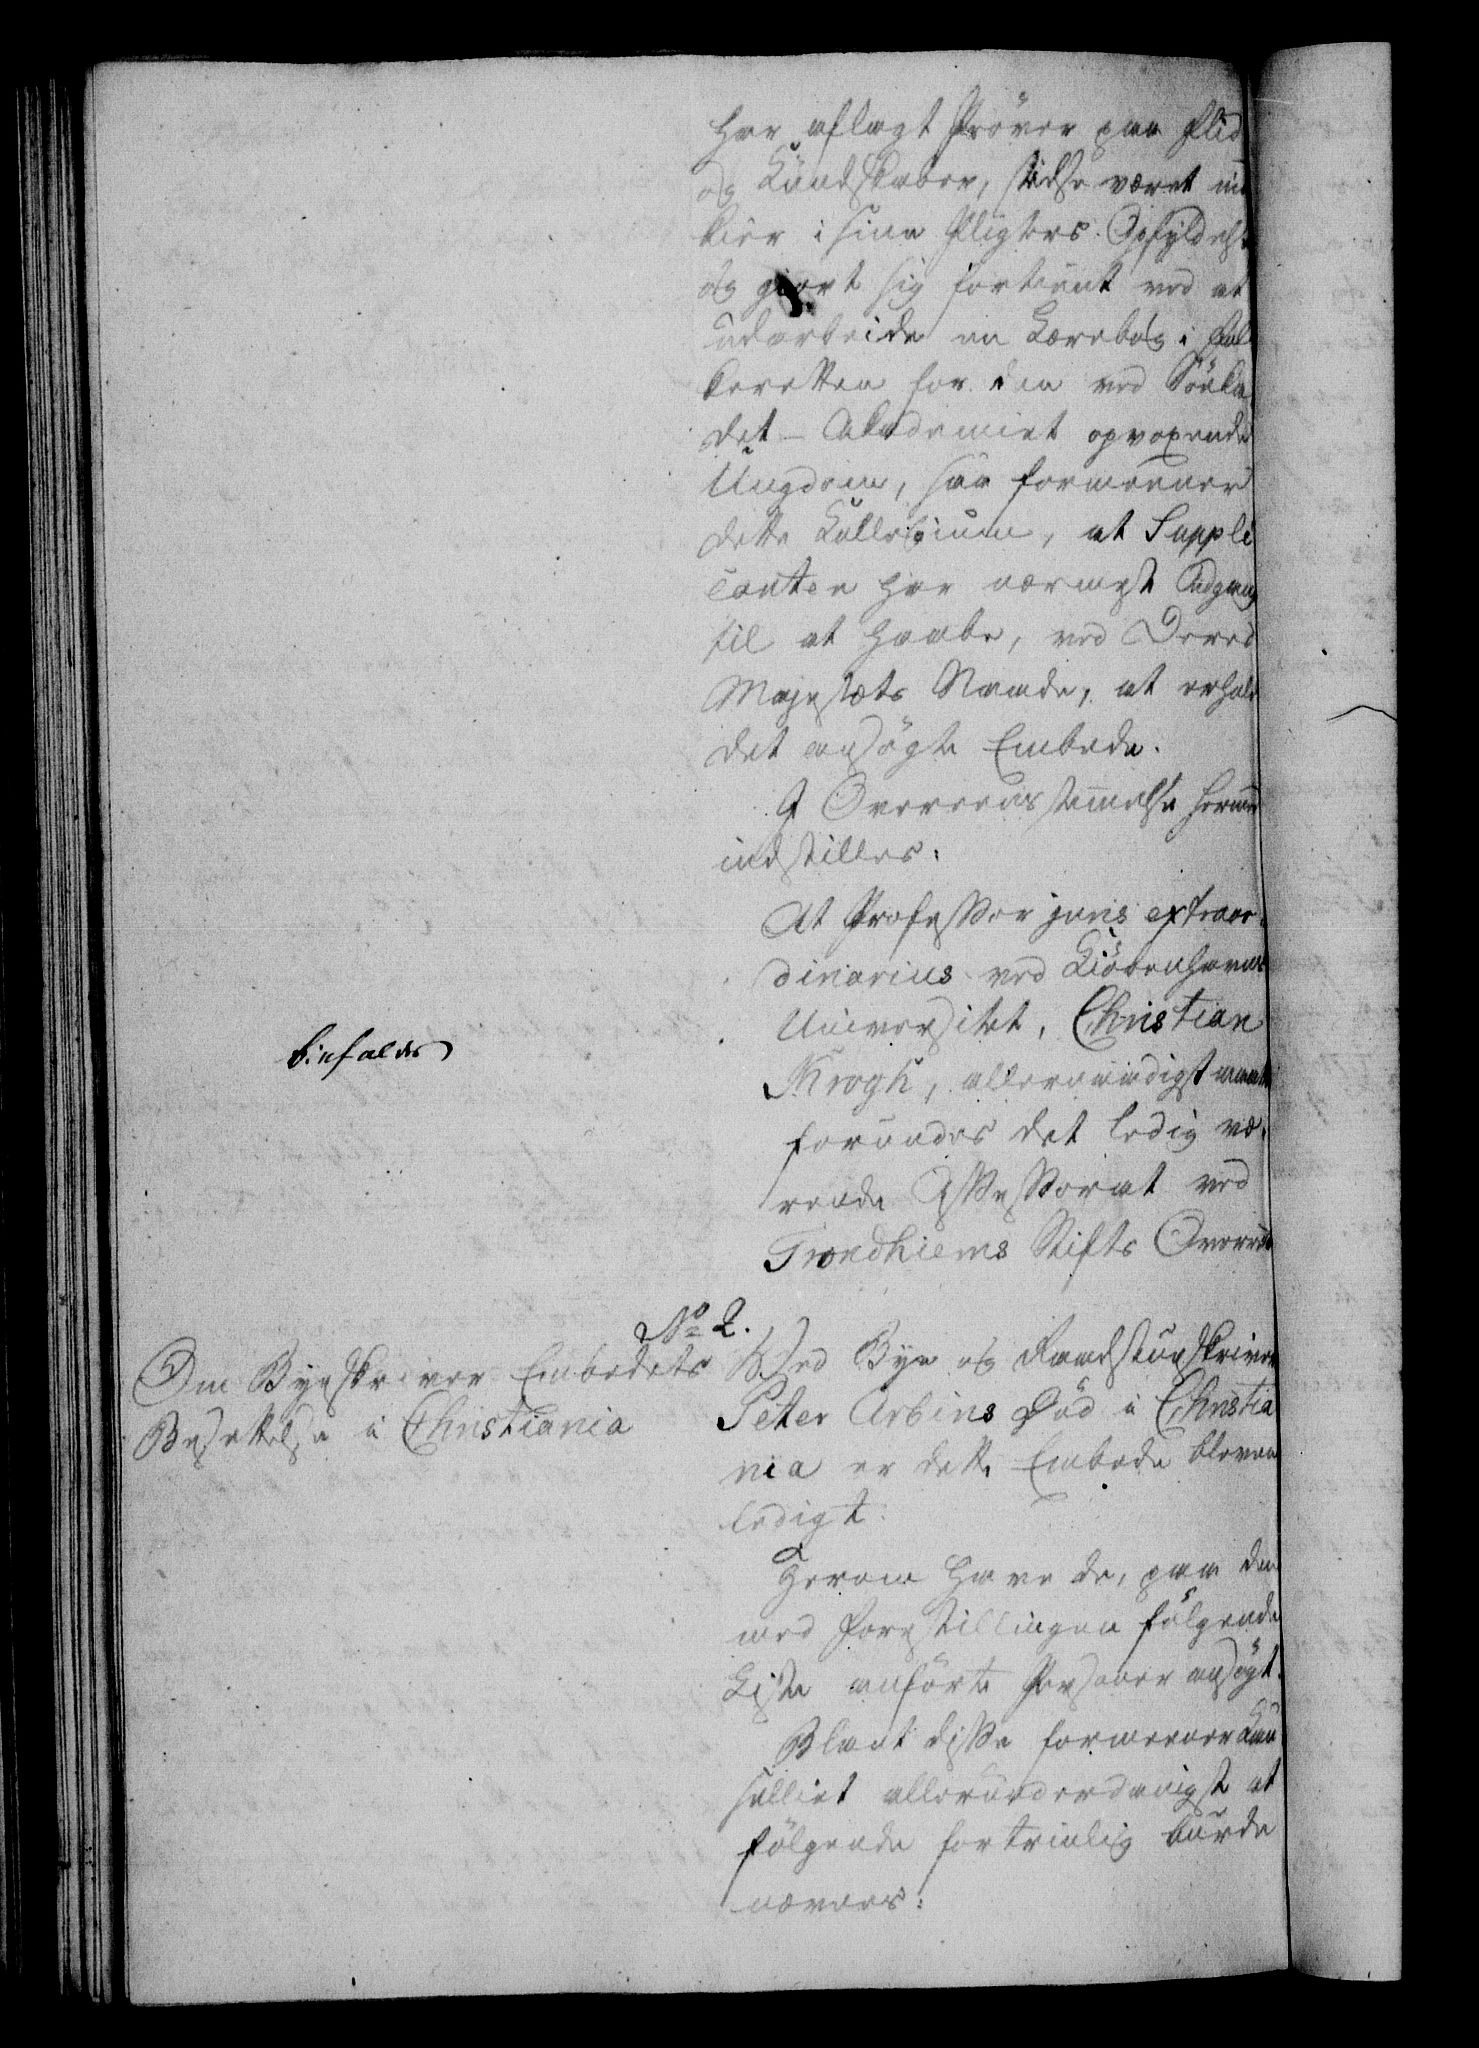 har aflagt Prøver paa Flid
og Kundskaber, stedse været nid
kiær i sine Pligters Opfyldelse
og giort sig fortient ved at
udarbeide en Lærebog i Fol
keretten for den ved Söeka
det-Academiet opvoxende
Ungdom, saa formeener
dette Kollegium, at Suppli
canten har nærmest Adgang
til at haabe, ved Deres
Majestæts Naade, at erholde
det ansøgte Embede.
I Overeensstemmelse hermed
indstilles:
At Professor juris extraor-
dinarius ved Kiöbenhavns
Universitet, Christian
Krogh, allernaadigst maatte
forundes det ledig væ-
rende Assessorat ved
Trondhiems Stifts Overret
bifaldes
No 2.
Om Byeskriver Embedets
Besættelse i Christiania
Ved Bye og Raadstueskriver
Peter Arbins Død i Christia
nia er dette Embede bleven
ledigt.
Herom have de, paa den
med Forestillingen fölgende
Liste anførte Personer ansøgt.
Blant disse formeener Kan
celliet allerunderdanigst at
fölgende fortrinlig burde
nævnes: